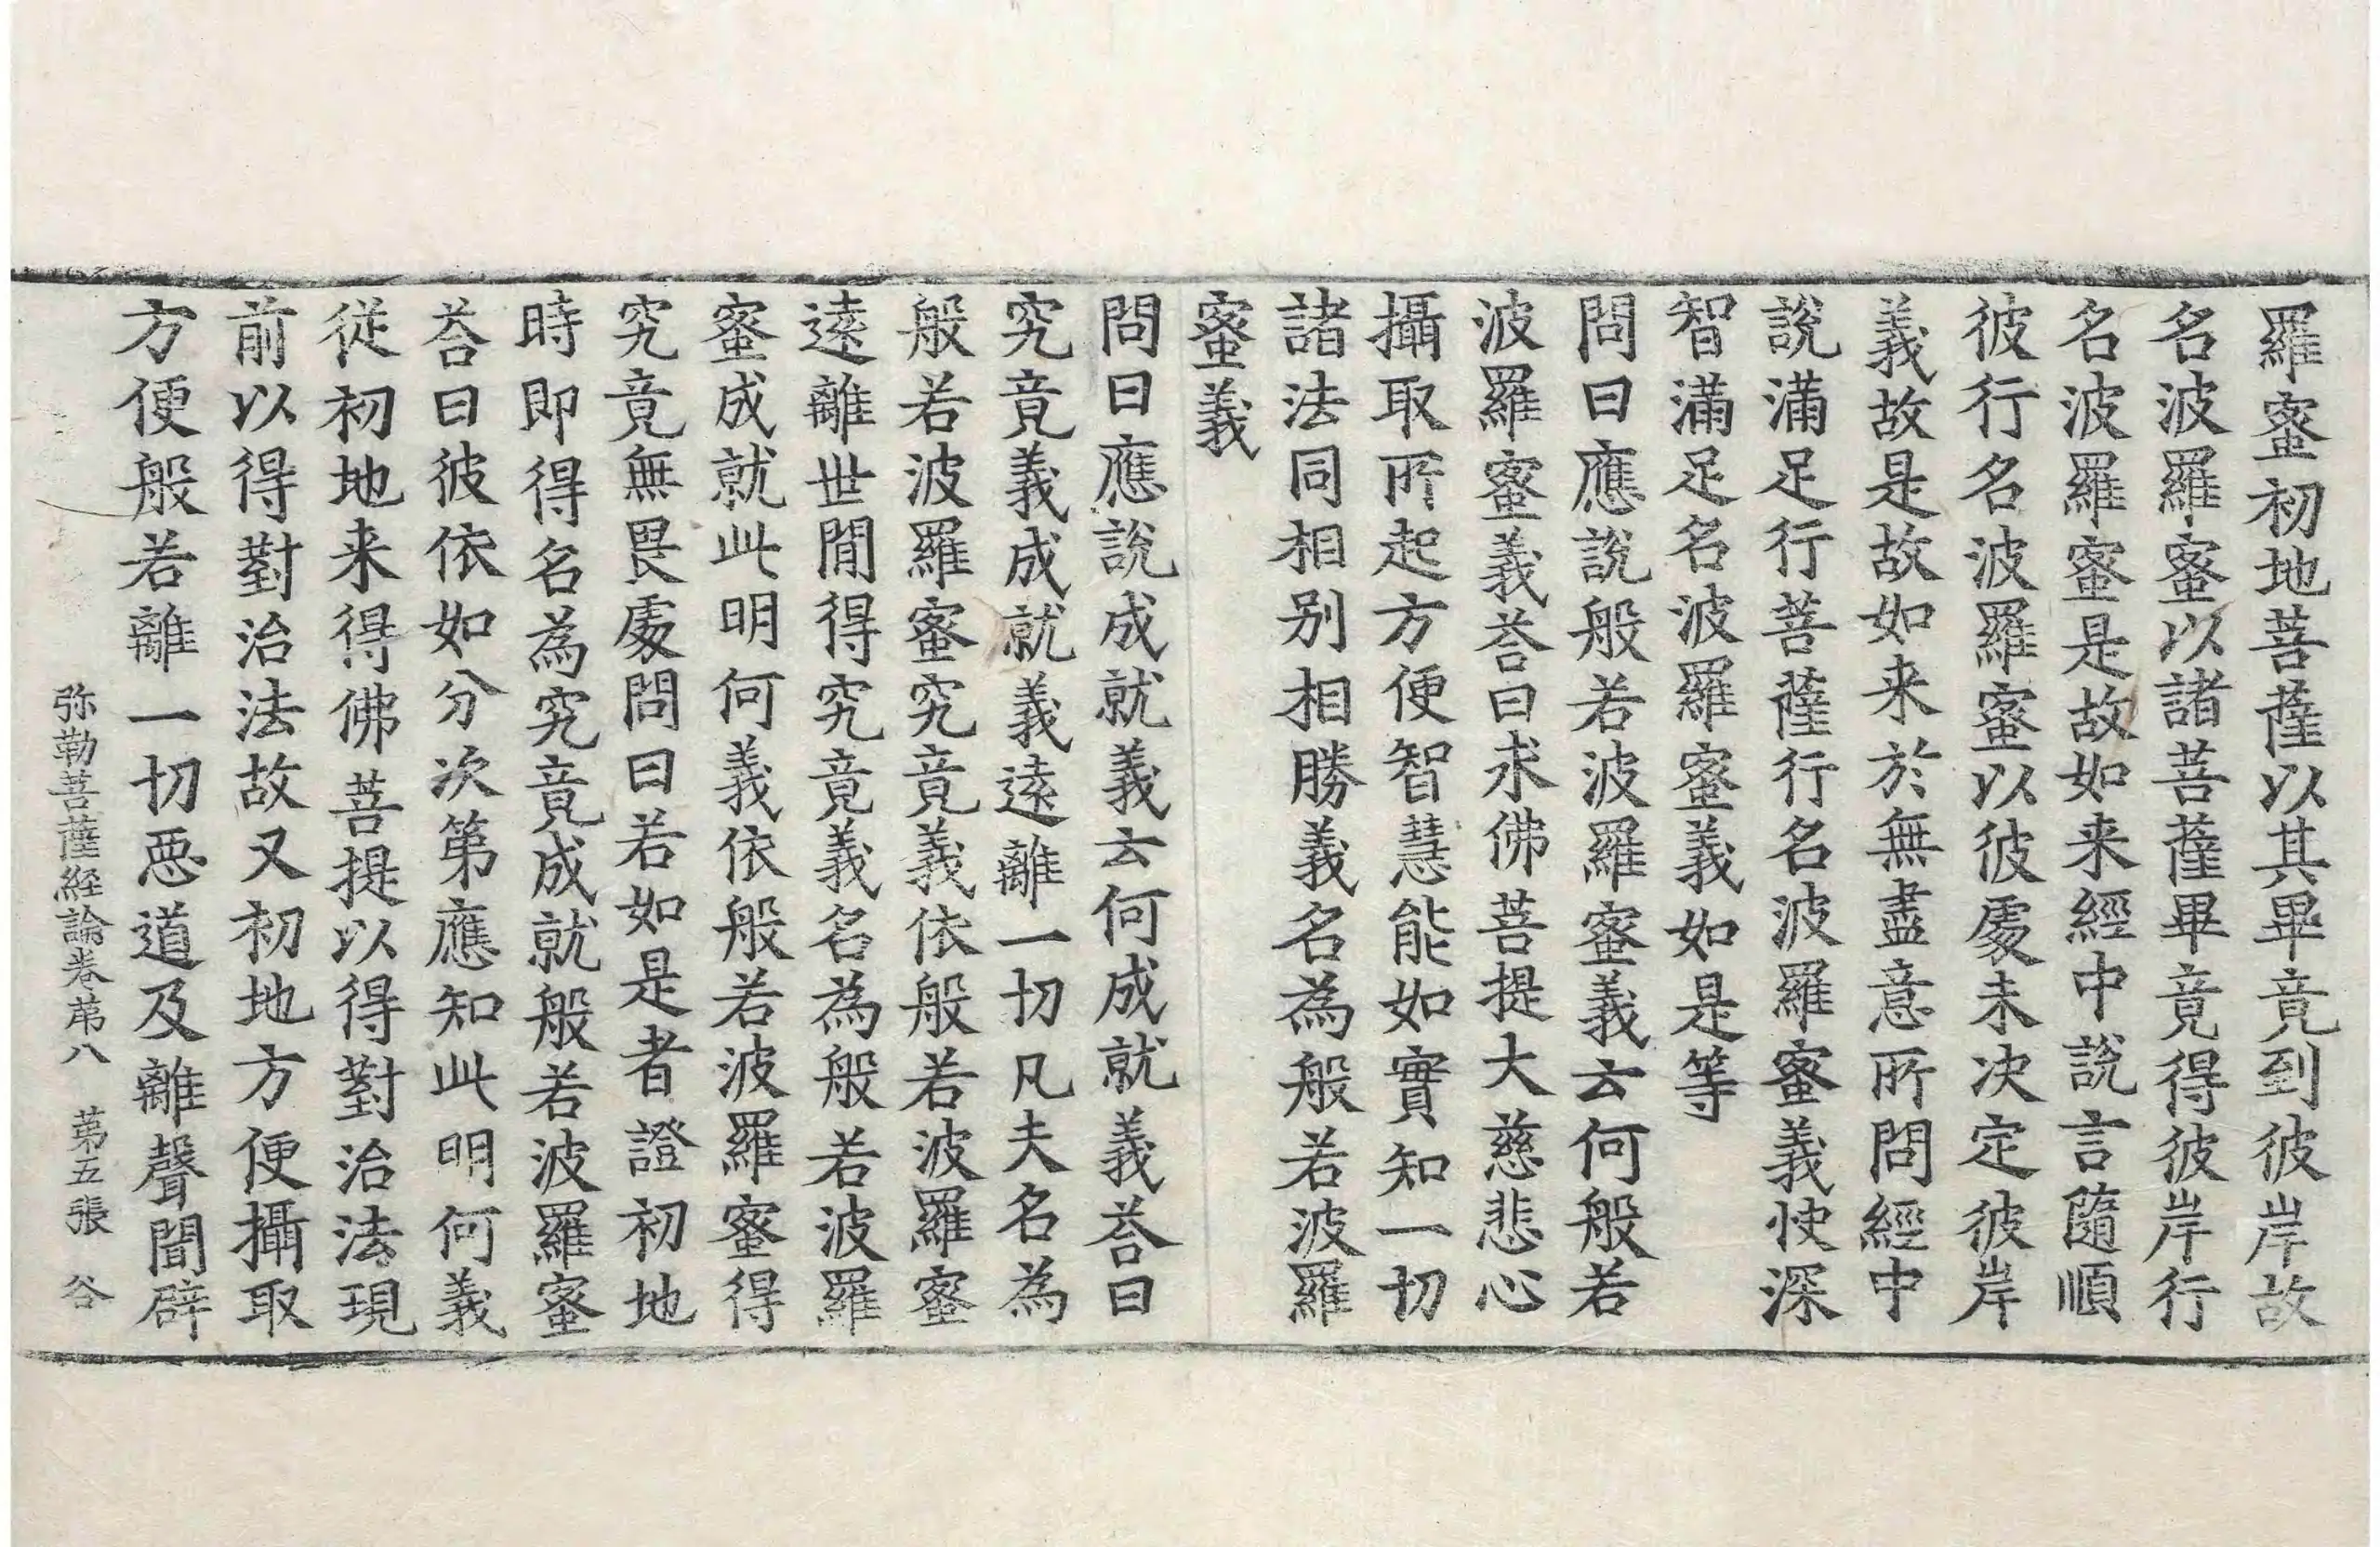 羅蜜初地菩薩以其畢竟到彼岸故
名波羅蜜以諸菩薩畢竟得彼岸行
名波羅蜜是故如来經中說言隨順
彼行名波羅蜜以彼處未决定彼岸
義故是故如来於無盡意所問經中
說滿足行菩薩行名波羅蜜義快深
智滿足名波羅蜜義如是等
問曰應說般若波羅蜜義云何般若
波羅蜜義荅曰求佛菩提大慈悲心
攝取所起方便智慧能如實知一切
諸法同相別相勝義名為般若波羅
蜜義
問曰應說成就義云何成就義荅曰
究竟義成就義遠離一切凡夫名為
般若波羅蜜究竟義依般若波羅蜜
遠離世間得究竟義名為般若波羅
蜜成就此明何義依般若波羅蜜得
究竟無畏處問曰若如是者證初地
時即得名為究竟成就般若波羅蜜
荅曰彼依如分次第應知此明何義
從初地来得佛菩提以得對治法現
前以得對治法故又初地方便攝取
方便般若離一切惡道及離聲聞辟
弥勒菩薩経論卷苐八 苐五張 谷